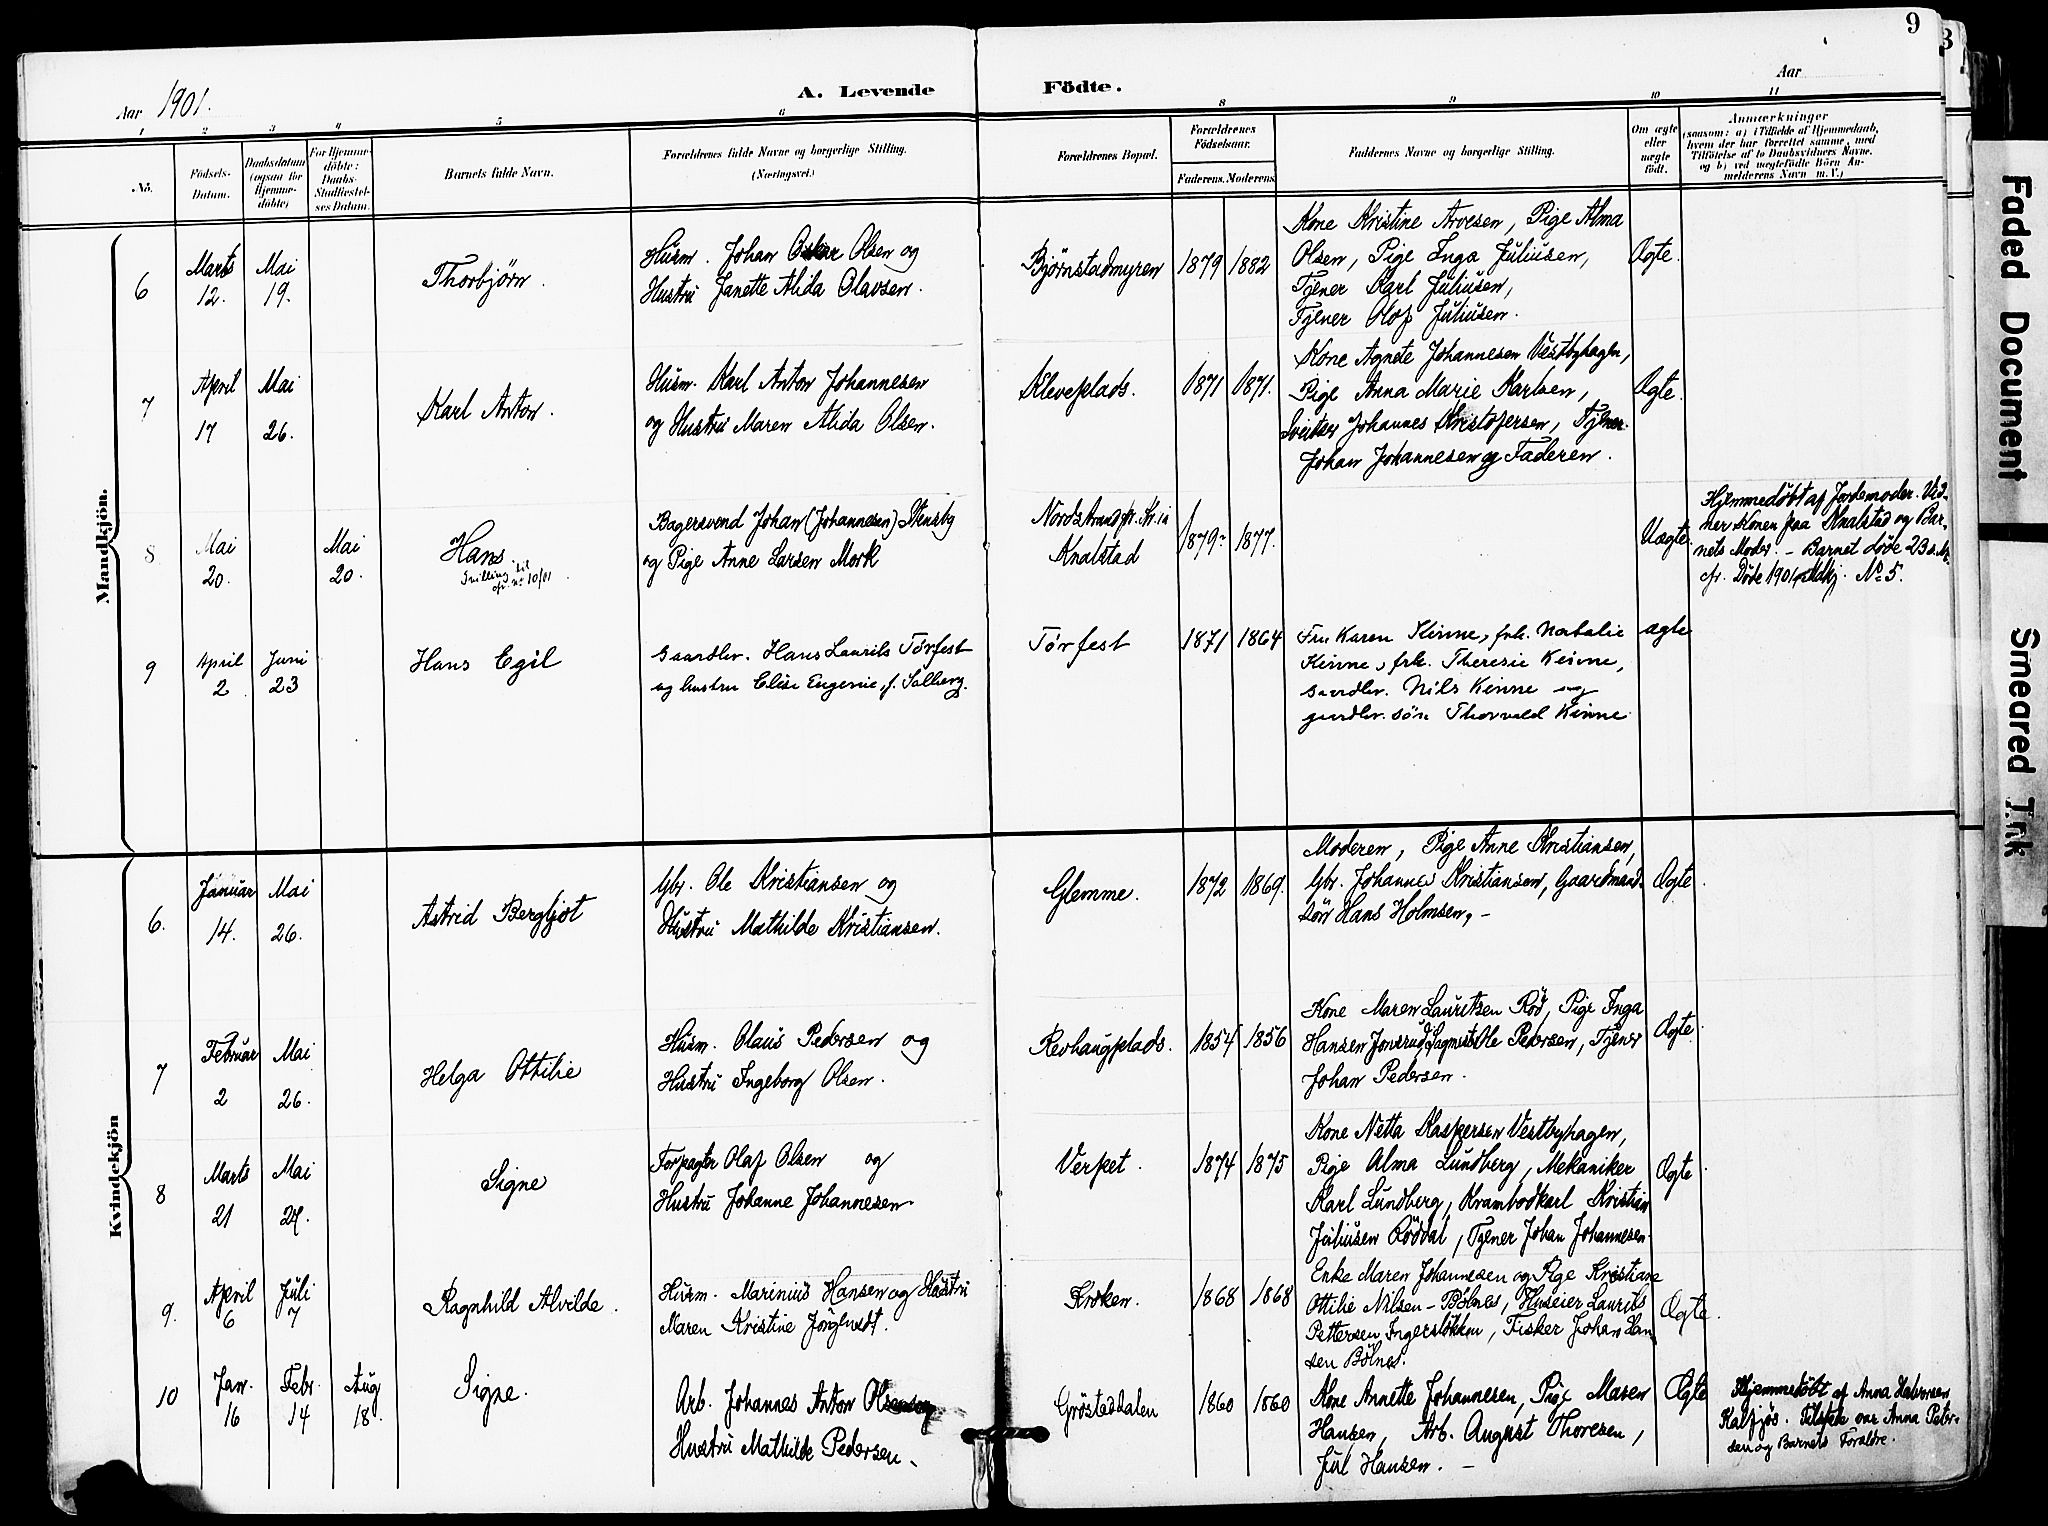 9
Aar 1901.
A. Levende Födte.
Aar
1 2 3 4 5 6 8 9 10 11
No.
Födsels-Datum.
Daabsdatum (ogsaa for Hjemme-döbte)
For Hjemme-döbte: Daabs-Stadfæstel-ses Datum.
Barnets fulde Navn.
Forældrenes fulde Navne og borgerlige Stilling. (Næringsvei.)
Forældrenes Bopæl.
Forældrenes Födselsaar.
Faderens. Moderens.
Faddernes Navne og borgerlige Stilling.
Om ægte eller uægte födt.
Anmærkninger
(saasom: a) i Tilfælde af Hjemmedaab,
hvem der har forrettet samme, med
Tilföielse af to Daabsvidners Navne,
og b) ved uægtefödte Börn An-
melderens Navn m. V.)
Mandkjön.
6
Marts 12.
Mai 19.
Thorbjörn.
Husm. Johan Oskar Olsen og
Hustru Janette Alida Olavsen.
Bjørnstadmyren
1879
1882
Kone Kristine Arvesen, Pige Alma
Olsen, Pige Inga Juliusen,
Tjener Karl Juliusen,
Tjener Olof Juliusen.
Ægte.
7
April 17
Mai 26.
Karl Anton.
Husm. Karl Anton Johannesen
og Hustru Maren Alida Olsen.
Kleveplads.
1871
1871.
Kone Agnete Johannesen Vestbyhagen,
Pige Anna Marie Karlsen,
Sveitser Johannes Kristofersen, Tjener
Johan Johannesen og Faderen.
Ægte.
8
Mai 20.
Mai 20.
Hans
Tvilling til
cfr. nr 10/01.
Bagersvend Johan (Johannesen) Stensby
og Pige Anne Larsen Mork
Nordstrand pr. Kr.ia
Knalstad
1879
1877.
Uægte.
Hjemmedöbt af Jordemoder. Vid-
ner Konen paa Knalstad og Bar-
nets Moder. – Barnet döde 23 s. M.
cfr. Döde 1901, Mdkj. No 5.
9
April 2
Juni 23
Hans Egil
Gaardbr. Hans Laurits Törfest
og hustru Elise Eugenie, f. Solberg.
Törfest
1871
1864
Fru Karen Kinne, frk. Natalie
Kinne, frk. Theresie Kinne,
gaardbr. Nils Kinne og
gaardbr. sön Thorvald Kinne.
ægte
Kvindekjön
6.
Januar 14.
Mai 26.
Astrid Bergljot
Gbr. Ole Kristiansen og
Hustru Mathilde Kristiansen.
Glemme.
1872
1869.
Moderen, Pige Anne Kristiansen,
Gbr. Johannes Kristiansen, Gaardmands-
sön Hans Holmsen, –
Ægte.
7
Februar 2
Mai 26.
Helga Ottilie
Husm. Olaus Pedersen og
Hustru Ingeborg Olsen.
Revhaugplads.
1854
1856
Kone Maren Lauritsen Röd, Pige Inga
Hansen Ole Pedersen, Tjener
Johan Pedersen.
Ægte.
8
Marts 21
Mai
Signe
Forpagter Olaf Olsen og
Hustru Johanne Johannesen
Verpet.
1874
1875
Kone Netta Kaspersen Vestbyhagen,
Pige Alma Lundberg, Mekaniker
Karl Lundberg, Krambodkarl Kristian
Juliusen Röddal, Tjener Johan Johannesen.
Ægte
9.
April 6
Juli 7
Ragnhild Alvilde.
Husm. Marinius Hansen og Hustru
Maren Kristine Jörgensdt.
Kroken.
1868
1868
Enke Maren Johannesen og Pige Kristiane
Ottilie Nilsen – Bölnes, Huseier Laurits
Pettersen Ingerslökken, Fisker Johan Han-
sen Bölnes.
Ægte.
10
Jan. 16
Febr. 14
Aug 18.
Signe.
Arb. Johannes Anton Olsen og
Hustru Mathilde Pedersen.
Gröstaddalen
1860
1860
Kone Annette Johannesen, Pige Maren
Hansen, Arb. August Thoresen,
Jul Hansen. –
Ægte
Hjemmedöbt af Anna Halvorsen
Kalfjös. Tilstede var Anna Peter-
sen og Barnets Forældre.
Faded Document
Smeared Ink